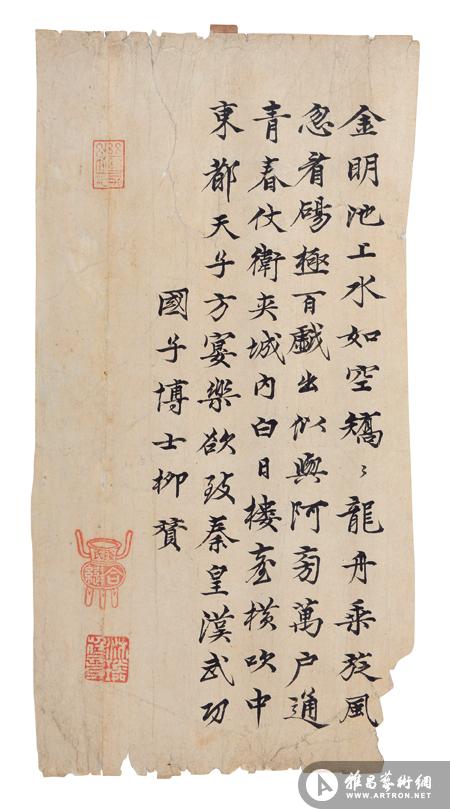 金明池上水如空矯〻龍舟乘旋風
忽看碭極百戲出似與阿房萬户通
青春仗衛夾城内白日樓臺橫吹中
東都天子方宴樂欲致秦皇漢武功
國子博士柳贇
雅昌藝術網
WWW.ARTRON.NET